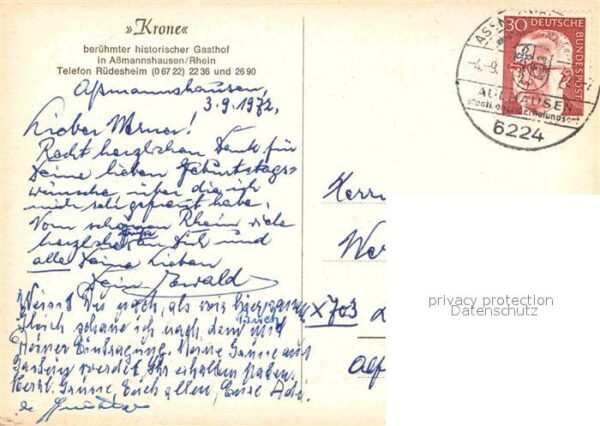 »Krone«
berühmter historischer Gasthof
in Aßmannshausen/Rhein
Telefon Rüdesheim (0 67 22) 22 36 und 26 90
Aßmannshausen,
3.9.1972,
Lieber Werner!
Recht herzlichen Dank für
Deine lieben Geburtstags-
wünsche über die ich
mich sehr gefreut habe.
Vom schönen Rhein viele
herzliche Grüße an Dich und
alle Deine Lieben
Dein Ewald
Weisst Du noch, als wir hier
Gleich schaue ich nach dem Buch und
Eintragung. Meine Grüsse aus
Gastein werdet Ihr erhalten haben.
Herzl. Grüsse, Euch allen, Eure
30 DEUTSCHE BUNDESPOST
-4.-9.
AULHAUSEN
staatl. anerk. Erholungsort
6224
Herrn
Wer
X703
privacy protection
Datenschutz